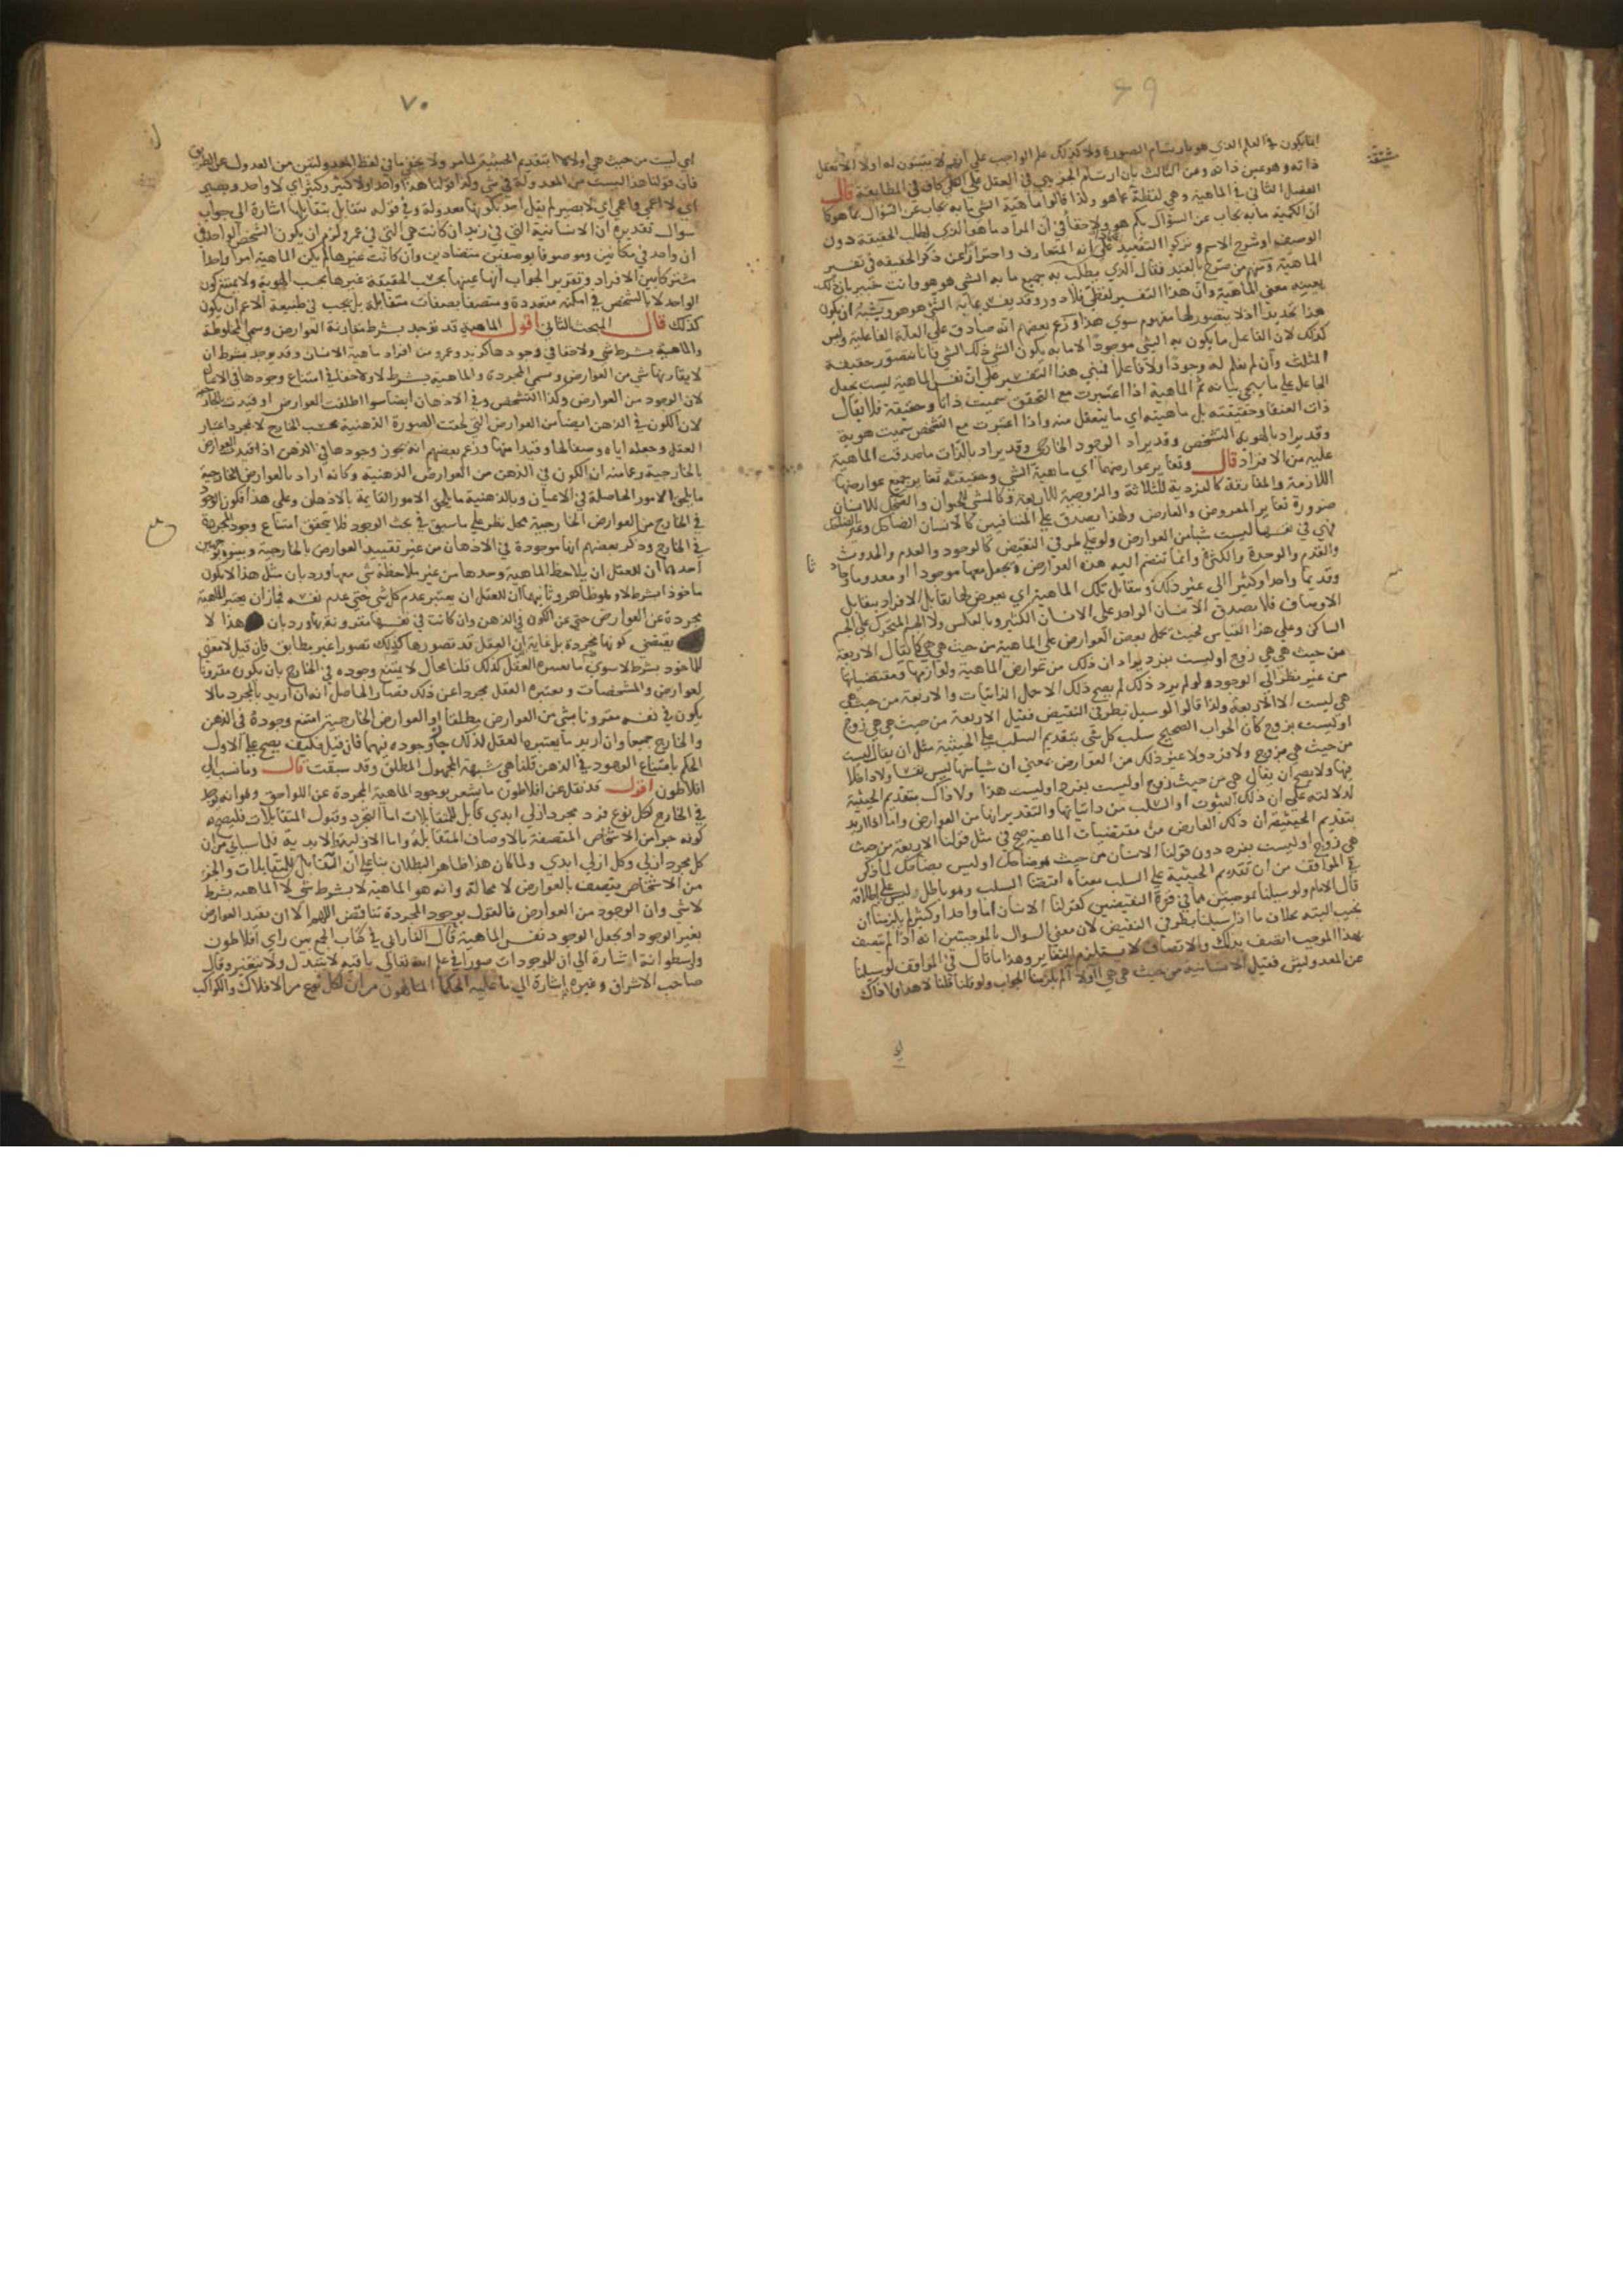 ٦٩
انما يكون في العلم الذي هو بارتسام الصورة ولا كذلك علم الواجب على انهم لا يثبتون له اولا الا تعقل
ذاته وهو عين ذاته ومن الثالث بان ارتسام الجزئي في العقل على الكلي كاف في المطابقة قال
الفصل الثاني في الماهية وهي لفظة ما هو ولذا قالوا ماهية الشي ما به يجاب عن السؤال بما هو كما
ان الكمية ما به يجاب عن السؤال بكم هو ولا خفا في ان المراد ما هو الذي لطلب الحقيقة دون
الوصف او شرح الاسم وتركوا التقييد على انه المتعارف واحترازا عن ذكر الحقيقة في تفسير
الماهية ومنهم من صرح بالقيد فقال الذي يطلب به جميع ما به الشي هو هو وانت خبير بان ذلك
بعينه معنى الماهية وان هذا التفسير لفظي فلا دور وقد يفسر بما به الشي هو هو ويشبه ان يكون
هذا تحديدا اذ لا يتصور لها مفهوم سوى هذا وزعم بعضهم انه صادق على العلة الفاعلية وليس
كذلك لان الفاعل ما يكون به الشي موجودا لا ما به يكون الشي ذلك الشي فانا نتصور حقيقة
المثلث وان لم نعلم له وجودا ولا فاعلا فمبنى هذا التفسير على ان نفس الماهية ليست بجعل
الجاعل على ما يجي بيانه ثم الماهية اذا اعتبرت مع التحقق سميت ذاتا وحقيقة فلا يقال
ذات العنقا وحقيقته بل ماهيته اي ما يتعقل منه واذا اعتبرت مع التشخص سميت هوية
وقد يراد بالهوية التشخص وقد يراد الوجود الخارجي وقد يراد بالذات ما صدقت الماهية
عليه من الافراد قال وتغاير عوارضها اي ماهية الشي وحقيقته تغاير جميع عوارضها
اللازمة والمفارقة كالفردية للثلاثة والزوجية للاربعة وكالمشي للحيوان والضحك للانسان
ضرورة تغاير المعروض والعارض ولهذا يصدق على المتنافيين كالانسان الضاحك وغير الضاحك
فهي في نفسها ليست شيا من العوارض ولو على طرفي النقيض كالوجود والعدم والحدوث
والقدم والوحدة والكثرة وانما تنضم اليه هذه العوارض فيجعل معها موجودا او معدوما وحادثا
وقديما وواحدا وكثيرا الى غير ذلك ومقابل تلك الماهية اي يعرض لها تقابل الافراد بتقابل
الاوصاف فلا يصدق الانسان الواحد على الانسان الكثير وبالعكس ولا الجسم المتحرك على الجسم
الساكن وعلى هذا القياس نحيث يحمل بعض العوارض على الماهية من حيث هي هي كما يقال الاربعة
من حيث هي هي زوج او ليست بفرد يراد ان ذلك من عوارض الماهية ولوازمها ومقتضياتها
من غير نظر الى الوجود ولو لم يرد ذلك لم يصح ذلك الا حمل الذاتيات والاربعة من حيث هي
هي ليست الا الاربعة ولذا قالوا لو سيل بطرفي النقيض فقيل الاربعة من حيث هي هي زوج
او ليست بزوج كان الجواب الصحيح سلب كل شي بتقديم السلب على الحيثية مثل ان يقال ليست
من حيث هي بزوج ولا فرد ولا غير ذلك من العوارض بمعنى ان شيا منها ليس نفسها ولا داخلا
فيها ولا يصح ان يقال هي من حيث زوج او ليست بفرد او ليست هذا ولا ذاك بتقديم الحيثية
لدلالته على ان ذلك الثبوت او السلب من ذاتياتها والتقدير انها من العوارض واما اذا اريد
بتقديم الحيثية ان ذلك العارض من مقتضيات الماهية صح في مثل قولنا الاربعة من حيث
هي زوج او ليست بفرد دون قولنا الانسان من حيث هو ضاحك او ليس بضاحك لما ذكر
في المواقف من ان تقديم الحيثية على السلب معناه اقتضا السلب وهو باطل ليس على اطلاقه
قال الامام ولو سيلنا بموجبتين هما في قوة النقيضين كقولنا الانسان اما واحد او كثير لم يلزمنا ان
نجيب البتة بخلاف ما اذا سيلنا بطرفي النقيض لان معنى السوال بالموجبتين انه اذا لم يتصف
بهذا الموجب اتصف بذلك والاتصاف لا يستلزم التغاير وهذا ما قال في المواقف لو سيلنا
عن المعدولتين فقيل الانسانية من حيث هي هي ا او لا ا لم يلزمنا الجواب ولو قلنا قلنا لا هذا ولا ذاك
٧٠
اي ليست من حيث هي ا ولا لا ا بتقديم الحيثية لما مر ولا يخفى ما في لفظ المعدولتين من العدول عن الطريق
فان قولنا هذا ليست من المعدولة في شي وكذا قولنا هذا واحد او لا كثير وكثير اي لا واحد وبصير
اي لا اعمى واعمى اي لا بصير لم يقل احد بكونها معدولة وفي قوله متقابل بتقابلها اشارة الى جواب
سوال تقديره ان الانسانية التي في زيد ان كانت هي التي في عمرو لزم ان يكون الشخص الواحد في
ان واحد في مكانين وموصوفا بوصفين متضادين وان كانت غيرها لم يكن الماهية امرا واحدا
مشتركا بين الافراد وتقرير الجواب انها عينها بحسب الحقيقة غيرها بحسب الهوية ولا يمتنع كون
الواحد لا بالشخص في امكنة متعددة ومتصفا بصفات متقابلة بل يجب في طبيعة الاعم ان يكون
كذلك قال المبحث الثاني اقول الماهية قد تؤخذ بشرط مقارنة العوارض وتسمى المخلوطة
والماهية بشرط شي ولا خفا في وجودها كزيد وعمرو من افراد ماهية الانسان وقد يوجد بشرط ان
لا يقارنها شي من العوارض وتسمى المجردة والماهية بشرط لا ولا خفا في امتناع وجودها في الاعيان
لان الوجود من العوارض وكذا التشخص وفي الاذهان ايضا سوا اطلقت العوارض او قيدت بالخارجية
لان الكون في الذهن ايضا من العوارض التي لحقت الصورة الذهنية بحسب الخارج لا بمجرد اعتبار
العقل وجعله اياه وصفا لها وقيدا فيها وزعم بعضهم انه يجوز وجودها في الذهن اذا قيدت العوارض
بالخارجية زعما منه ان الكون في الذهن من العوارض الذهنية وكانه اراد بالعوارض الخارجية
ما يلحق الامور الحاصلة في الاعيان وبالذهنية ما يلحق الامور القايمة بالاذهان وعلى هذا فكون الوجود
في الخارج من العوارض الخارجية محل نظر على ما سبق في بحث الوجود فلا يتحقق امتناع وجود المجردة
في الخارج وذكر بعضهم انها موجودة في الاذهان من غير تقييد العوارض بالخارجية وبينوه بوجهين
احدهما ان للعقل ان يلاحظ الماهية وحدها من غير ملاحظة شي معها ورد بان مثل هذا لا يكون
ماخوذا بشرط لا وهو ظاهر وثانيهما ان للعقل ان يعتبر عدم كل شي حتى عدم نفسه فجاز ان يعتبر الماهية
مجردة عن العوارض حتى عن الكون في الذهن وان كانت في نفسها مقرونة بها ورد بان هذا لا
يقتضي كونها مجردة بل غايته ان العقل قد تصورها كذلك تصورا غير مطابق فان قيل لا معنى
للماخوذ بشرط لا سوى ما يعتبره العقل كذلك قلنا محال لا يمتنع وجوده في الخارج بان يكون مقرونا
لعوارض والمشخصات ويعتبره العقل مجردا عن ذلك فصار الحاصل انه ان اريد بالمجرد ما لا
يكون في نفسه مقرونا بشي من العوارض مطلقا او العوارض الخارجية امتنع وجوده في الذهن
والخارج جميعا وان اريد ما يعتبره العقل كذلك جاز وجوده فيهما فان قيل فكيف يصح على الاول
الحكم بامتناع الوجود في الذهن قلنا هي شبهة المجهول المطلق وقد سبقت قال وما نسب الى
افلاطون اقول قد نقل عن افلاطون ما يشعر بوجود الماهية المجردة عن اللواحق وهو انه يوجد
في الخارج لكل نوع فرد مجرد ازلي ابدي قابل للمتقابلات اما التجرد وقبول المتقابلات فليصح
كونه جزا من الاشخاص المتصفة بالاوصاف المتقابلة واما الازلية والابدية فلما سياتي من ان
كل مجرد ازلي وكل ازلي ابدي ولما كان هذا ظاهر البطلان بناء على ان القابل للمتقابلات والجزء
من الاشخاص يتصف بالعوارض لا محالة وانه هو الماهية لا بشرط شي لا الماهية بشرط
لا شي وان الوجود من العوارض فالقول بوجود المجردة تناقض اللهم الا ان يقيد العوارض
بغير الوجود او يجعل الوجود نفس الماهية قال الفارابي في كتاب الجمع بين راي افلاطون
وارسطو انه اشارة الى ان للموجودات صورا في علم الله تعالى باقية لا تتبدل ولا تتغير وقال
صاحب الاشراق وغيره اشارة الى ما عليه الحكما المتالهون من ان لكل نوع من الافلاك والكواكب